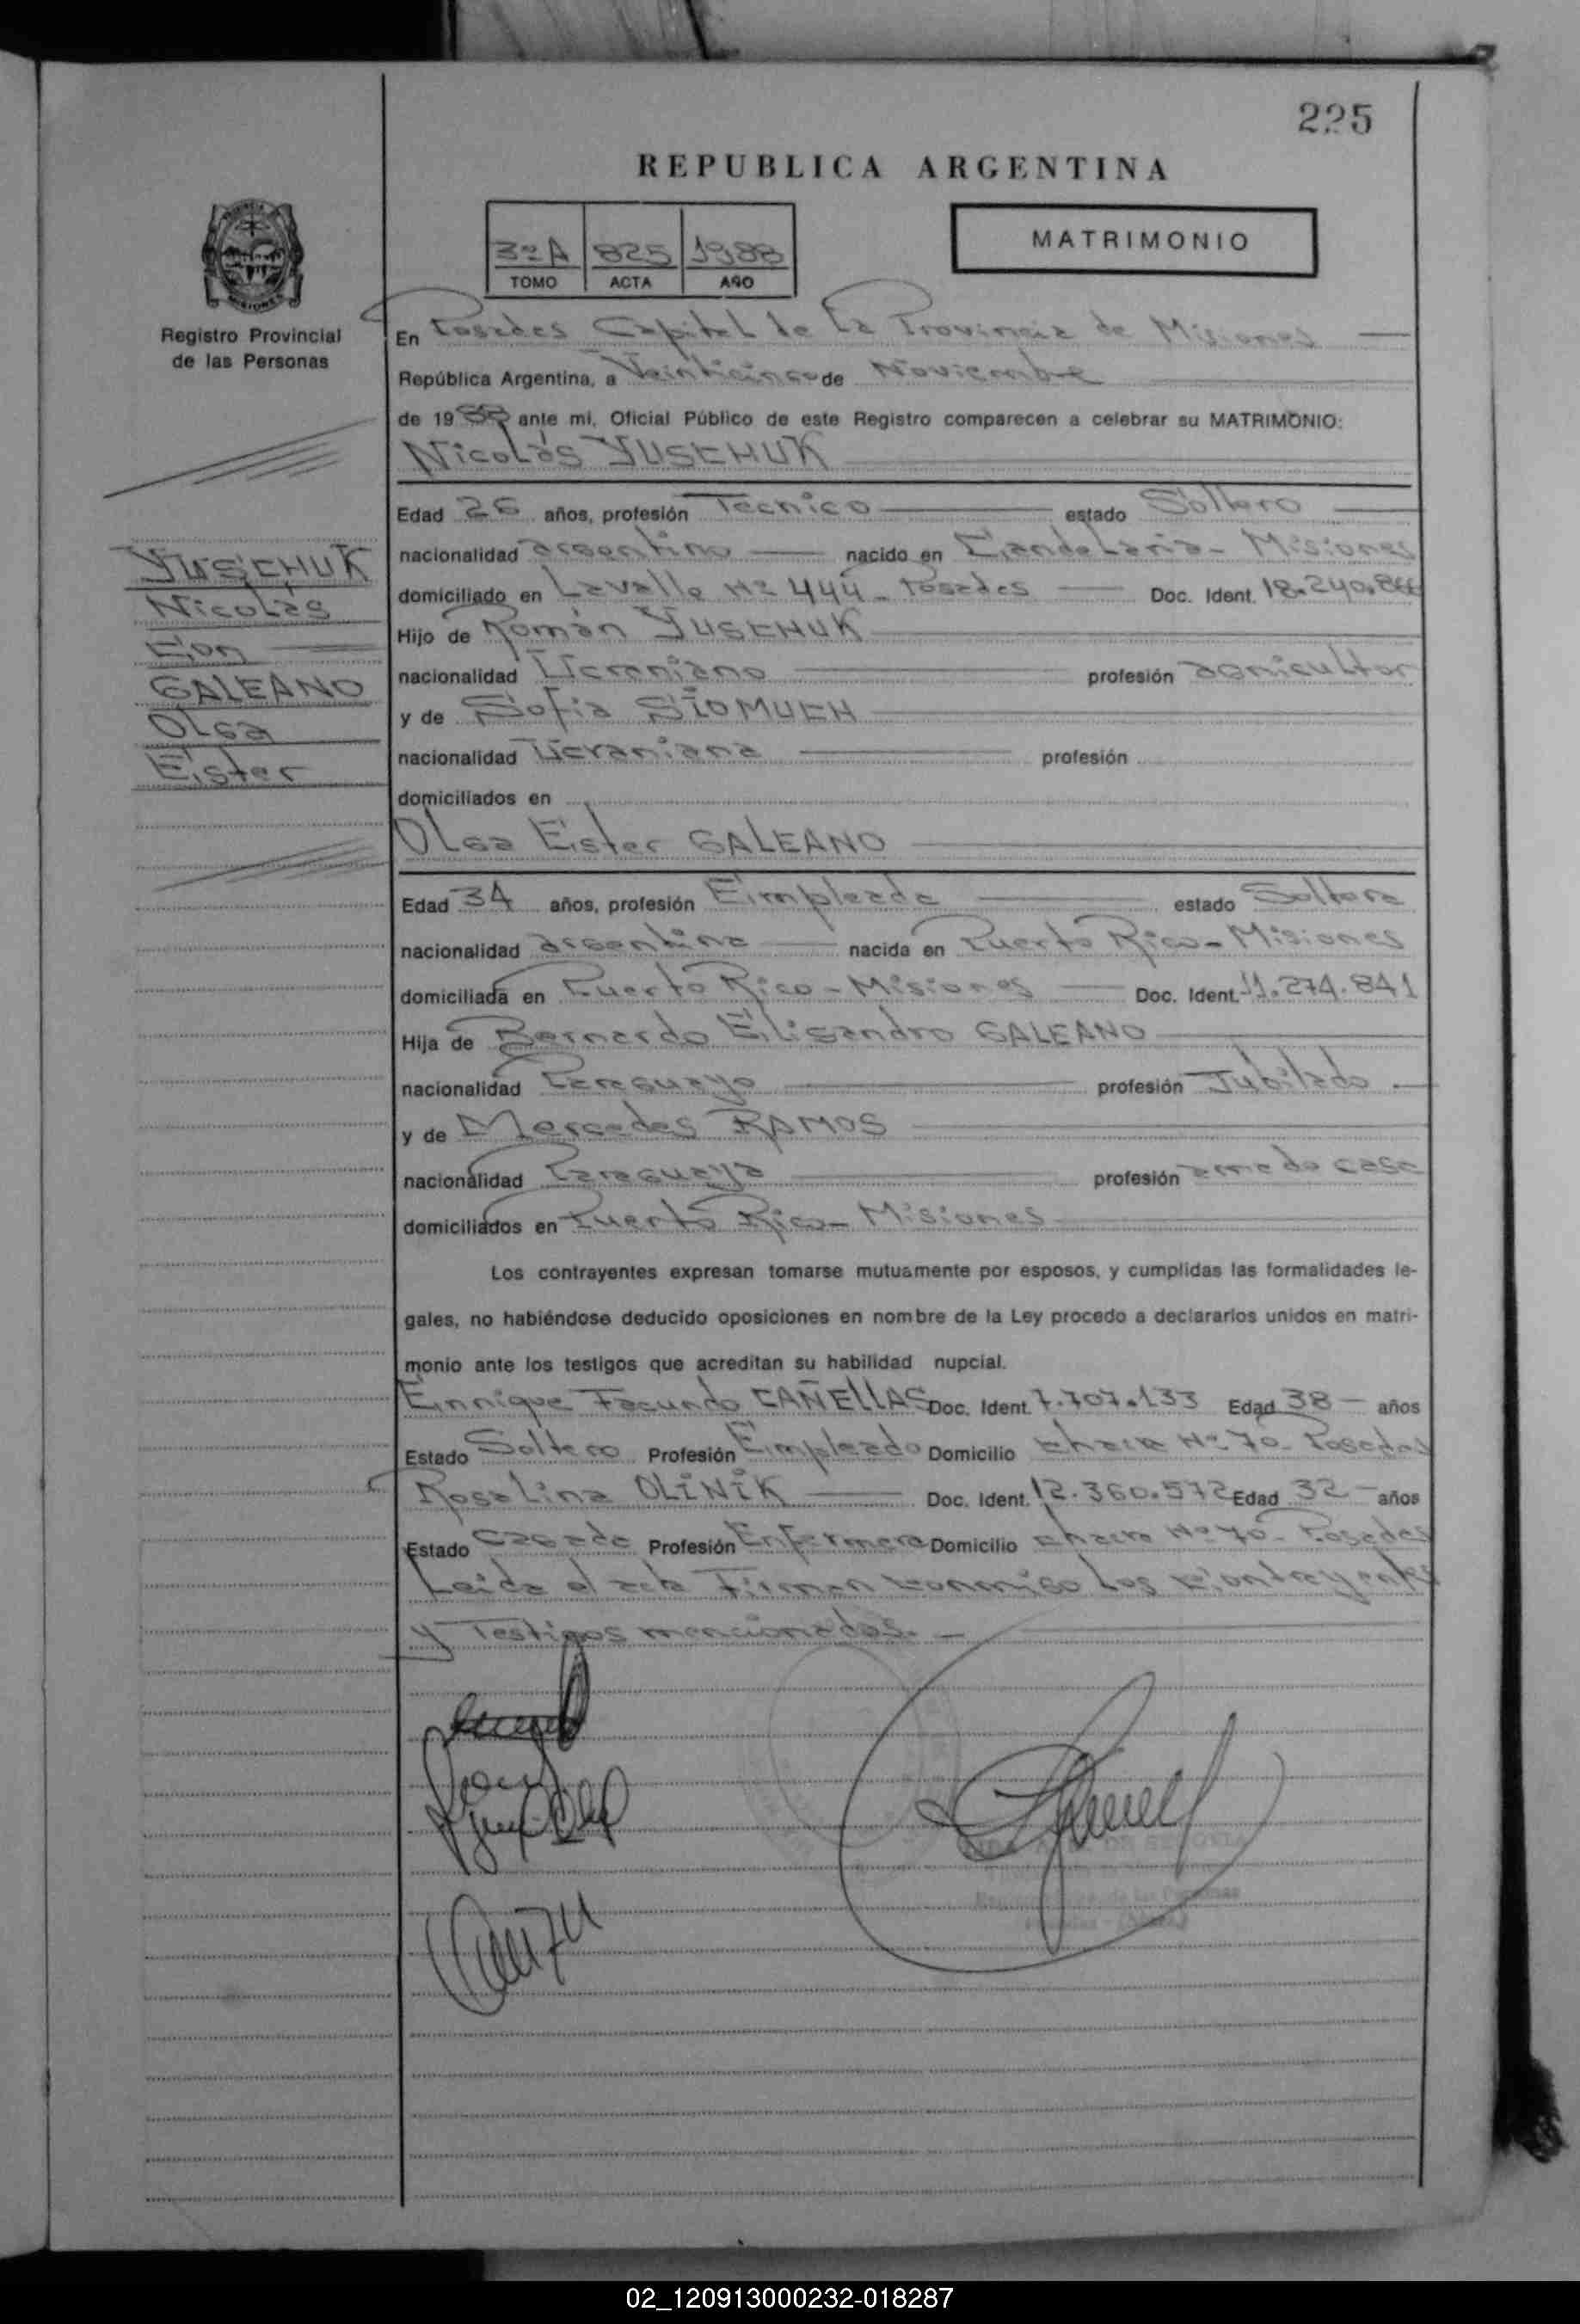 225
REPUBLICA ARGENTINA
3º A 825 1988
TOMO ACTA AÑO
MATRIMONIO
Registro Provincial
de las Personas
En Posadas Capital de La Provincia de Misiones
República Argentina, a Veinticinco de Noviembre
de 1988 ante mi, Oficial Público de este Registro comparecen a celebrar su MATRIMONIO:
Nicolás YUSCHUK
Edad 26 años, profesión Técnico estado Soltero
nacionalidad argentino nacido en Candelaria - Misiones
domiciliado en Lavalle Nº 444 - Posadas Doc. Ident. 18.240.
Hijo de Román YUSCHUK
nacionalidad Ucraniano profesión agricultor
y de Sofia SIOMUCH
nacionalidad Ucraniana profesión
domiciliados en
YUSCHUK
Nicolás
Con
GALEANO
Olga
Ester
Olga Ester GALEANO
Edad 34 años, profesión Empleada estado Soltera
nacionalidad argentina nacida en Puerto Rico - Misiones
domiciliada en Puerto Rico - Misiones Doc. Ident. 11.274.841
Hija de Bernardo Elisandro GALEANO
nacionalidad Paraguayo profesión Jubilado
y de Mercedes RAMOS
nacionalidad Paraguaya profesión ama de casa
domiciliados en Puerto Rico - Misiones
Los contrayentes expresan tomarse mutuamente por esposos, y cumplidas las formalidades le-
gales, no habiéndose deducido oposiciones en nombre de la Ley procedo a declararlos unidos en matri-
monio ante los testigos que acreditan su habilidad nupcial.
Enrique Facundo CAÑELLAS Doc. Ident. 7.707.133 Edad 38 - años
Estado Soltero Profesión Empleado Domicilio chacra Nº 70 - Posadas
Rosalina OLINIK Doc. Ident. 12.360.572 Edad 32 - años
Estado Casada Profesión Enfermera Domicilio chacra Nº 70 - Posadas
Leida el acta Firman conmigo los contrayentes
y Testigos mencionados. -
02_120913000232-018287